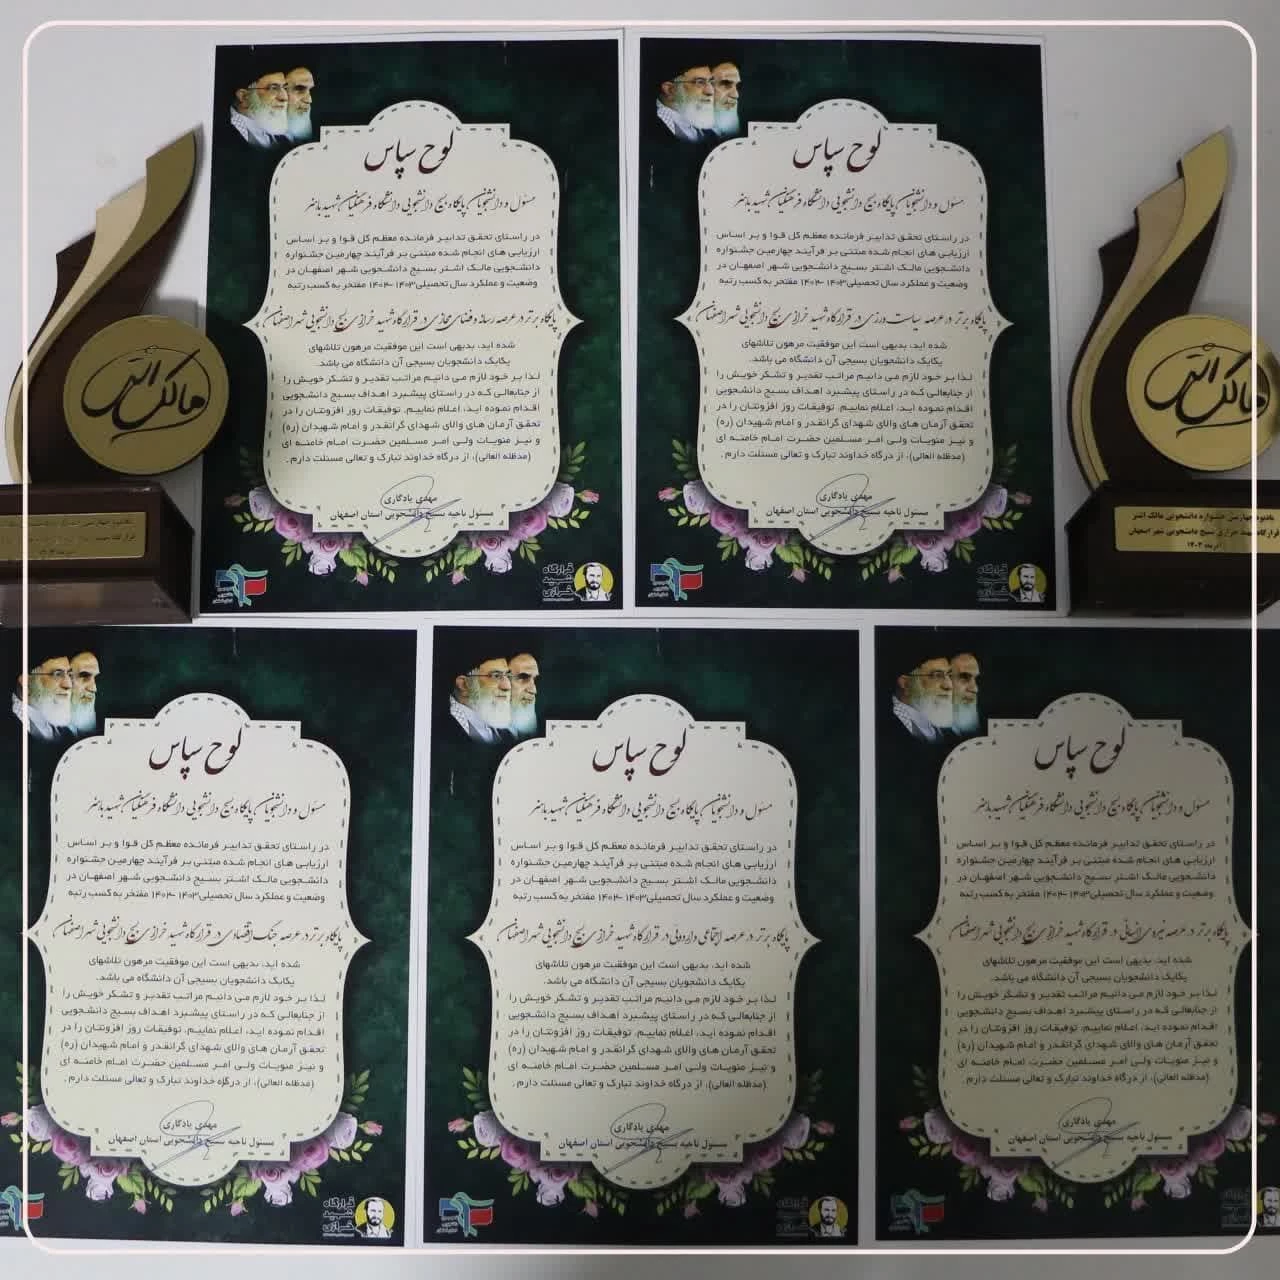 لوح سپاس
مسئول و دانشجویان پایگاه بسیج دانشجویی دانشگاه فرهنگیان شهید باهنر
در راستای تحقق تدابیر فرمانده معظم کل قوا و بر اساس
ارزیابی های انجام شده مبتنی بر فرآیند چهارمین جشنواره
دانشجویی مالک اشتر بسیج دانشجویی شهر اصفهان در
وضعیت و عملکرد سال تحصیلی ۱۴۰۳-۱۴۰۴ مفتخر به کسب رتبه
پایگاه برتر در عرصه سیاست ورزی در قرارگاه شهید خرازی بسیج دانشجویی شهر اصفهان
شده اید، بدیهی است این موفقیت مرهون تلاشهای
یکایک دانشجویان بسیجی آن دانشگاه می باشد.
لذا بر خود لازم می دانیم مراتب تقدیر و تشکر خویش را
از جنابعالی که در راستای پیشبرد اهداف بسیج دانشجویی
اقدام نموده اید، اعلام نماییم. توفیقات روز افزونتان را در
تحقق آرمان های والای شهدای گرانقدر و امام شهیدان (ره)
و نیز منویات ولی امر مسلمین حضرت امام خامنه ای
(مدظله العالی)، از درگاه خداوند تبارک و تعالی مسئلت دارم.
مهدی یادگاری
مسئول ناحیه بسیج دانشجویی استان اصفهان
قرارگاه
شهید
خرازی
لوح سپاس
مسئول و دانشجویان پایگاه بسیج دانشجویی دانشگاه فرهنگیان شهید باهنر
در راستای تحقق تدابیر فرمانده معظم کل قوا و بر اساس
ارزیابی های انجام شده مبتنی بر فرآیند چهارمین جشنواره
دانشجویی مالک اشتر بسیج دانشجویی شهر اصفهان در
وضعیت و عملکرد سال تحصیلی ۱۴۰۳-۱۴۰۴ مفتخر به کسب رتبه
پایگاه برتر در عرصه رسانه و فضای مجازی در قرارگاه شهید خرازی بسیج دانشجویی شهر اصفهان
شده اید، بدیهی است این موفقیت مرهون تلاشهای
یکایک دانشجویان بسیجی آن دانشگاه می باشد.
لذا بر خود لازم می دانیم مراتب تقدیر و تشکر خویش را
از جنابعالی که در راستای پیشبرد اهداف بسیج دانشجویی
اقدام نموده اید، اعلام نماییم. توفیقات روز افزونتان را در
تحقق آرمان های والای شهدای گرانقدر و امام شهیدان (ره)
و نیز منویات ولی امر مسلمین حضرت امام خامنه ای
(مدظله العالی)، از درگاه خداوند تبارک و تعالی مسئلت دارم.
مهدی یادگاری
مسئول ناحیه بسیج دانشجویی استان اصفهان
قرارگاه
شهید
خرازی
مالک اشتر
چهارمین جشنواره دانشجویی مالک اشتر
شهید خرازی بسیج دانشجویی شهر اصفهان
مالک اشتر
لوح سپاس
مسئول و دانشجویان پایگاه بسیج دانشجویی دانشگاه فرهنگیان شهید باهنر
در راستای تحقق تدابیر فرمانده معظم کل قوا و بر اساس
ارزیابی های انجام شده مبتنی بر فرآیند چهارمین جشنواره
دانشجویی مالک اشتر بسیج دانشجویی شهر اصفهان در
وضعیت و عملکرد سال تحصیلی ۱۴۰۳-۱۴۰۴ مفتخر به کسب رتبه
پایگاه برتر در عرصه نیروی انسانی در قرارگاه شهید خرازی بسیج دانشجویی شهر اصفهان
شده اید، بدیهی است این موفقیت مرهون تلاشهای
یکایک دانشجویان بسیجی آن دانشگاه می باشد.
لذا بر خود لازم می دانیم مراتب تقدیر و تشکر خویش را
از جنابعالی که در راستای پیشبرد اهداف بسیج دانشجویی
اقدام نموده اید، اعلام نماییم. توفیقات روز افزونتان را در
تحقق آرمان های والای شهدای گرانقدر و امام شهیدان (ره)
و نیز منویات ولی امر مسلمین حضرت امام خامنه ای
(مدظله العالی)، از درگاه خداوند تبارک و تعالی مسئلت دارم.
مهدی یادگاری
مسئول ناحیه بسیج دانشجویی استان اصفهان
لوح سپاس
مسئول و دانشجویان پایگاه بسیج دانشجویی دانشگاه فرهنگیان شهید باهنر
در راستای تحقق تدابیر فرمانده معظم کل قوا و بر اساس
ارزیابی های انجام شده مبتنی بر فرآیند چهارمین جشنواره
دانشجویی مالک اشتر بسیج دانشجویی شهر اصفهان در
وضعیت و عملکرد سال تحصیلی ۱۴۰۳-۱۴۰۴ مفتخر به کسب رتبه
پایگاه برتر در عرصه اجتماعی و اردویی در قرارگاه شهید خرازی بسیج دانشجویی شهر اصفهان
شده اید، بدیهی است این موفقیت مرهون تلاشهای
یکایک دانشجویان بسیجی آن دانشگاه می باشد.
لذا بر خود لازم می دانیم مراتب تقدیر و تشکر خویش را
از جنابعالی که در راستای پیشبرد اهداف بسیج دانشجویی
اقدام نموده اید، اعلام نماییم. توفیقات روز افزونتان را در
تحقق آرمان های والای شهدای گرانقدر و امام شهیدان (ره)
و نیز منویات ولی امر مسلمین حضرت امام خامنه ای
(مدظله العالی)، از درگاه خداوند تبارک و تعالی مسئلت دارم.
مهدی یادگاری
مسئول ناحیه بسیج دانشجویی استان اصفهان
قرارگاه
شهید
خرازی
لوح سپاس
مسئول و دانشجویان پایگاه بسیج دانشجویی دانشگاه فرهنگیان شهید باهنر
در راستای تحقق تدابیر فرمانده معظم کل قوا و بر اساس
ارزیابی های انجام شده مبتنی بر فرآیند چهارمین جشنواره
دانشجویی مالک اشتر بسیج دانشجویی شهر اصفهان در
وضعیت و عملکرد سال تحصیلی ۱۴۰۳-۱۴۰۴ مفتخر به کسب رتبه
پایگاه برتر در عرصه جنگ اقتصادی در قرارگاه شهید خرازی بسیج دانشجویی شهر اصفهان
شده اید، بدیهی است این موفقیت مرهون تلاشهای
یکایک دانشجویان بسیجی آن دانشگاه می باشد.
لذا بر خود لازم می دانیم مراتب تقدیر و تشکر خویش را
از جنابعالی که در راستای پیشبرد اهداف بسیج دانشجویی
اقدام نموده اید، اعلام نماییم. توفیقات روز افزونتان را در
تحقق آرمان های والای شهدای گرانقدر و امام شهیدان (ره)
و نیز منویات ولی امر مسلمین حضرت امام خامنه ای
(مدظله العالی)، از درگاه خداوند تبارک و تعالی مسئلت دارم.
مهدی یادگاری
مسئول ناحیه بسیج دانشجویی استان اصفهان
قرارگاه
شهید
خرازی